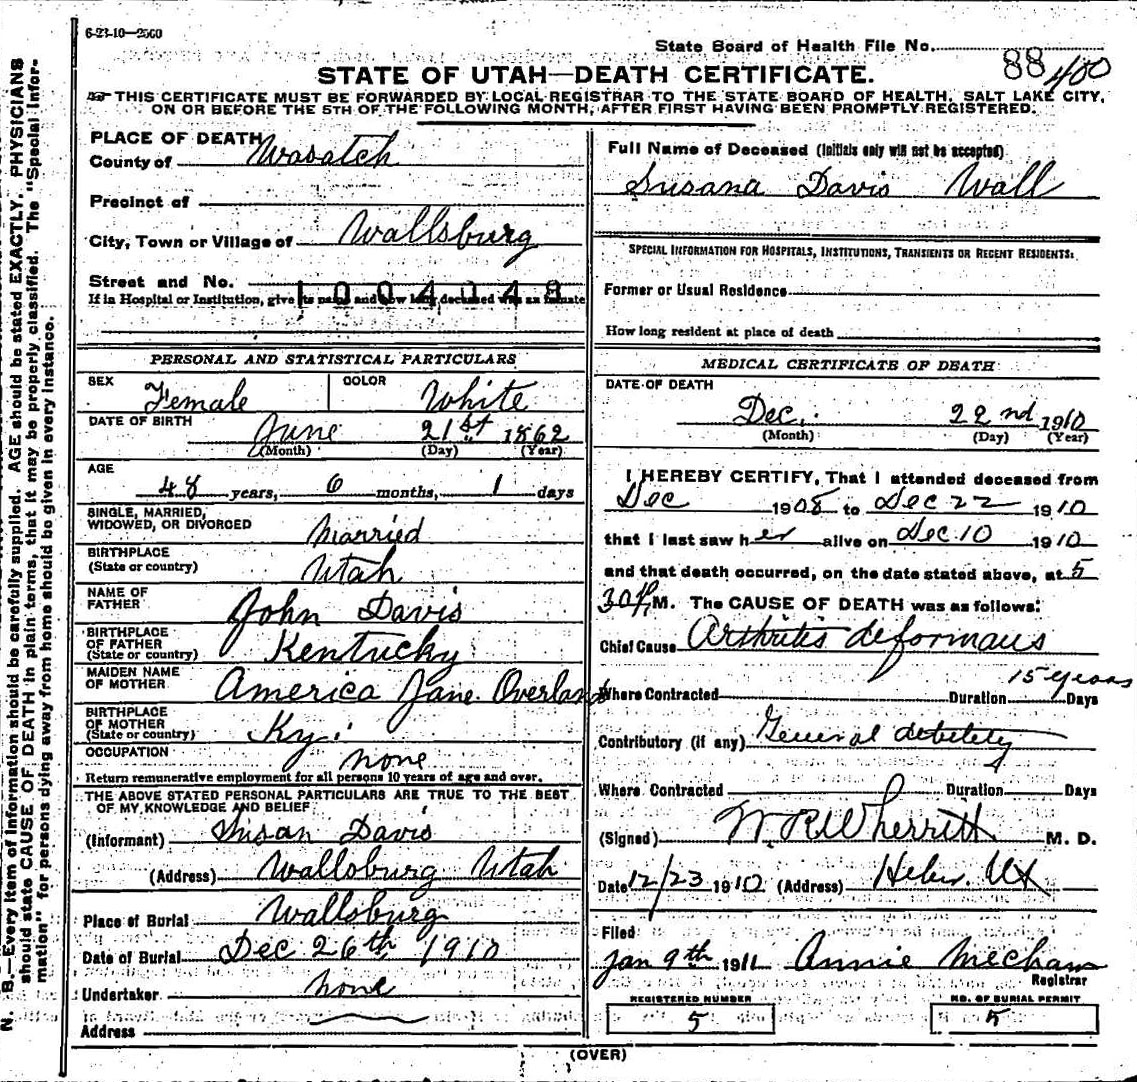 6-23-10—2500
State Board of Health File No. 88 400
STATE OF UTAH—DEATH CERTIFICATE.
THIS CERTIFICATE MUST BE FORWARDED BY LOCAL REGISTRAR TO THE STATE BOARD OF HEALTH, SALT LAKE CITY,
ON OR BEFORE THE 5TH OF THE FOLLOWING MONTH, AFTER FIRST HAVING BEEN PROMPTLY REGISTERED.
PLACE OF DEATH
County of Wasatch
Precinct of
City, Town or Village of Wallsburg
Street and No.
1004048
If in Hospital or Institution, give its name and how long deceased was an inmate
PERSONAL AND STATISTICAL PARTICULARS
SEX Female COLOR White
DATE OF BIRTH June 21st 1862
(Month) (Day) (Year)
AGE
48 years, 6 months, 1 days
SINGLE, MARRIED,
WIDOWED, OR DIVORCED married
BIRTHPLACE
(State or country) Utah
NAME OF
FATHER John Davis
BIRTHPLACE
OF FATHER
(State or country) Kentucky
MAIDEN NAME
OF MOTHER America Jane Overland
BIRTHPLACE
OF MOTHER
(State or country) Ky.
OCCUPATION none
Return remunerative employment for all persons 10 years of age and over.
THE ABOVE STATED PERSONAL PARTICULARS ARE TRUE TO THE BEST
OF MY KNOWLEDGE AND BELIEF
(Informant) Susan Davis
(Address) Wallsburg Utah
Place of Burial Wallsburg
Date of Burial Dec 26th 1910
Undertaker none
Address
Full Name of Deceased (Initials only will not be accepted)
Susana Davis Wall
SPECIAL INFORMATION FOR HOSPITALS, INSTITUTIONS, TRANSIENTS OR RECENT RESIDENTS:
Former or Usual Residence
How long resident at place of death
MEDICAL CERTIFICATE OF DEATH
DATE OF DEATH
Dec. 22nd 1910
(Month) (Day) (Year)
I HEREBY CERTIFY, That I attended deceased from
Dec 1908 to Dec 22 1910
that I last saw her alive on Dec. 10 1910
and that death occurred, on the date stated above, at 5
30 P. M. The CAUSE OF DEATH was as follows:
Chief Cause Arthritis deformans
Where Contracted Duration 15 years Days
Contributory (if any) General debility
Where Contracted Duration Days
(Signed) W R Wherritt M. D.
Date 12/23 1910 (Address) Heber. Ut
Filed
Jan 9th 1911 Annie Mecham
Registrar
REGISTERED NUMBER
5
NO. OF BURIAL PERMIT
5
(OVER)
N. B.—Every item of information should be carefully supplied. AGE should be stated EXACTLY. PHYSICIANS
should state CAUSE OF DEATH in plain terms, that it may be properly classified. The "Special Infor-
mation" for persons dying away from home should be given in every instance.